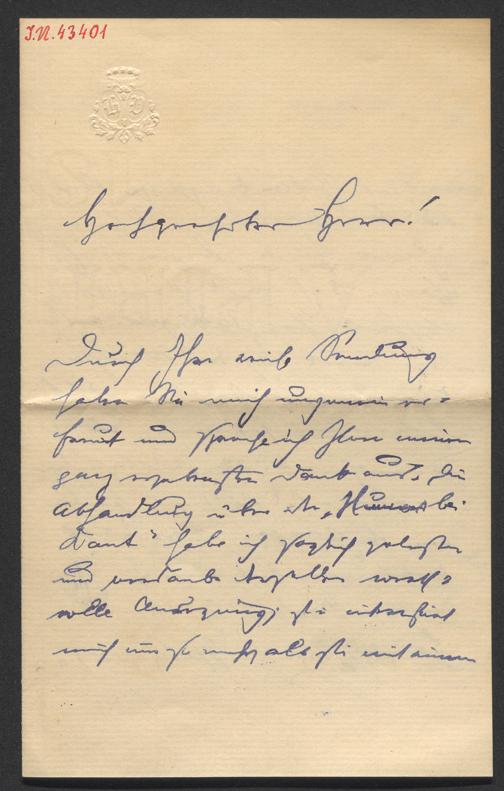 J.N. 43401
Hochgeehrter Herr!
Durch Ihre werte Sendung
haben Sie mich ungemein er-
freut und spreche ich Ihnen meinen
ganz ergebensten Dank aus. Die
Abhandlung über den „Humor bei
Dante" habe ich sogleich gelesen
und verdanke derselben werth-
volle Anregung; sie interessirt
mich um so mehr als sie mit einem